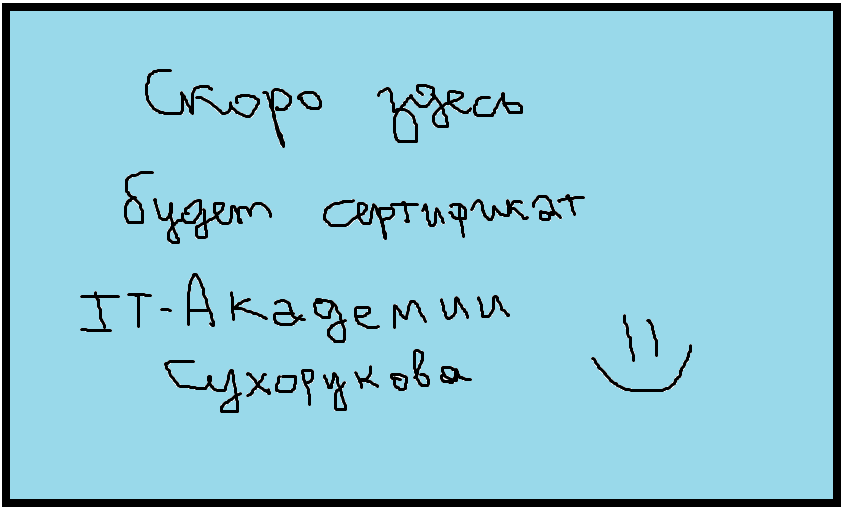 Скоро здесь
будет сертификат
IT-Академии
Сухорукова